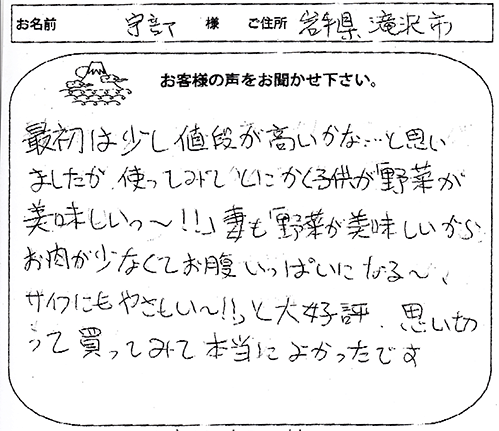 お名前 宇部 様 ご住所 岩手県 滝沢市
お客様の声をお聞かせ下さい。
最初は少し値段が高いかな…と思い
ましたが、使ってみてとにかく子供が「野菜が
美味しいっ〜!!」妻も「野菜が美味しいから
お肉が少なくてお腹いっぱいになる〜、
サイフにもやさしい〜!!」と大好評、思い切
って買ってみて本当によかったです